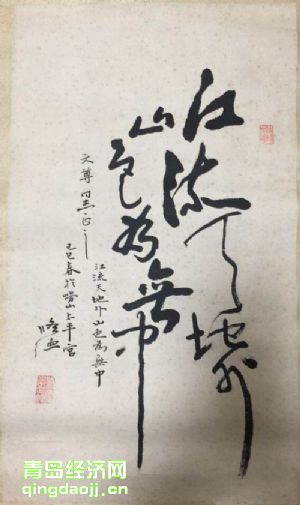 江流天地外
山色为無中
江流天地外山色為無中
文尊同志正之
己巳春於嶗山太平宮
青岛经济网
qingdaojj.cn